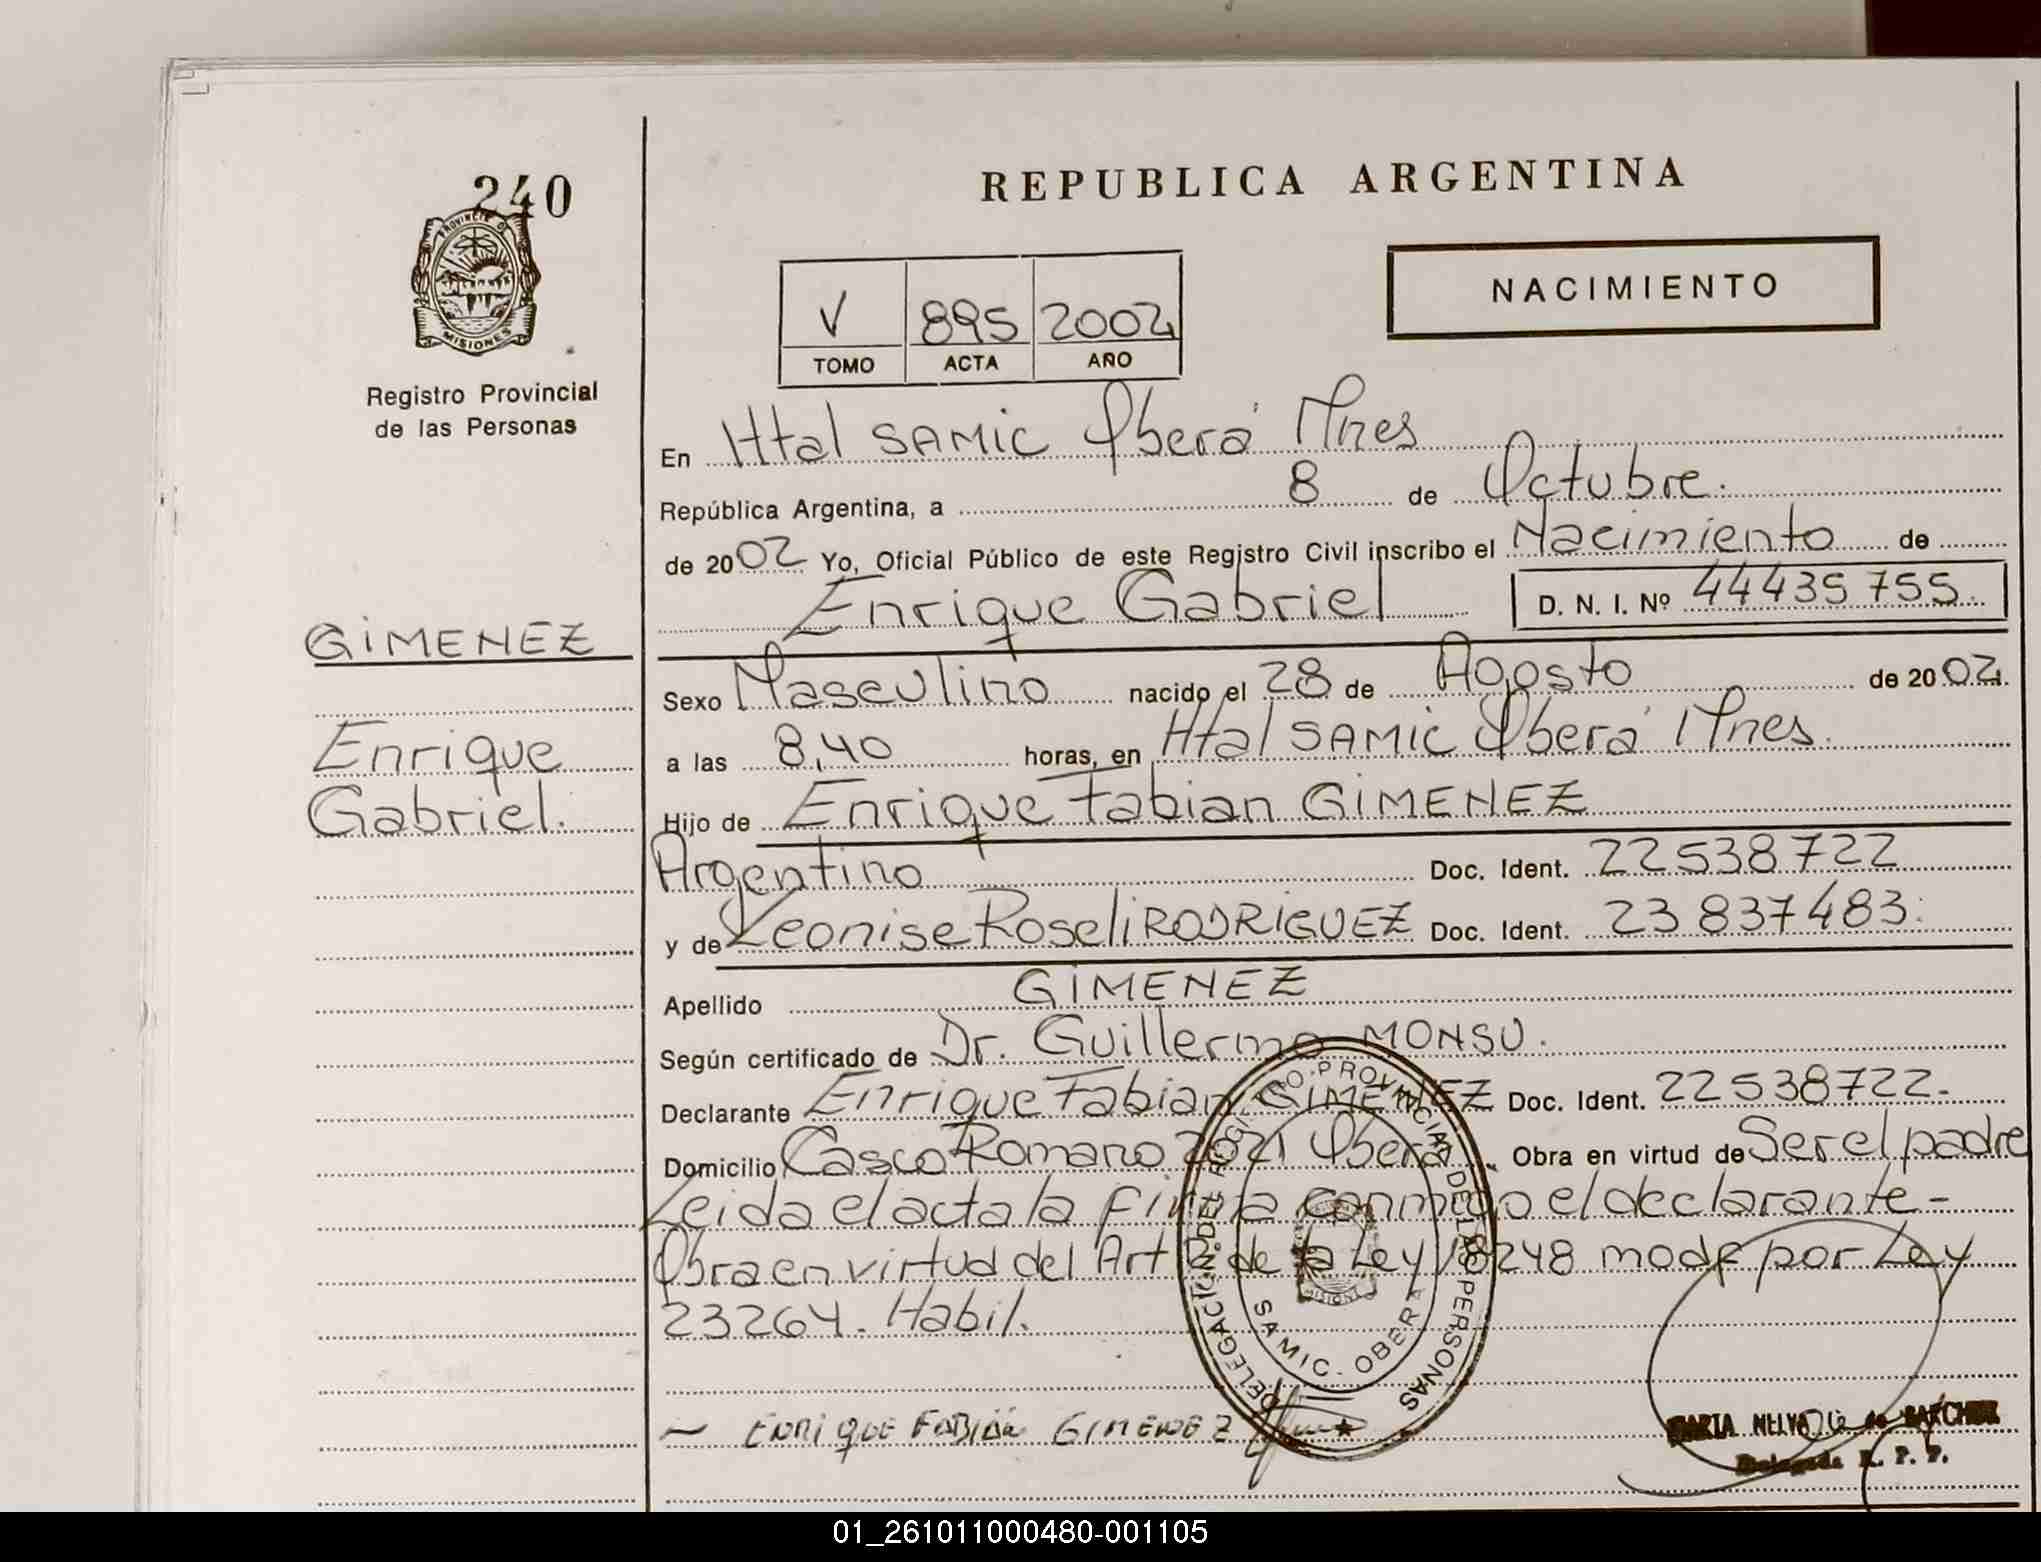 240
PROVINCIA DE
MISIONES
Registro Provincial
de las Personas
GIMENEZ
Enrique
Gabriel.
REPUBLICA ARGENTINA
V 895 2002
TOMO ACTA AÑO
NACIMIENTO
En Htal SAMIC Oberá Mnes
República Argentina, a 8 de Octubre.
de 2002 Yo, Oficial Público de este Registro Civil inscribo el Nacimiento de
Enrique Gabriel D. N. I. Nº 44435755.
Sexo Masculino nacido el 28 de Agosto de 2002.
a las 8,40 horas, en Htal SAMIC Oberá Mnes.
Hijo de Enrique Fabian GIMENEZ
Argentino Doc. Ident. 22538722
y de Leonise Roseli RODRIGUEZ Doc. Ident. 23837483.
Apellido GIMENEZ
Según certificado de Dr. Guillermo MONSU.
Declarante Enrique Fabian GIMENEZ Doc. Ident. 22538722.-
Domicilio Casco Romano 2821 Oberá. Obra en virtud de Ser el padre
Leida el acta la firma conmigo el declarante-
Obra en virtud del Art 2 de la Ley 18248 modf por Ley
23264. Habil.
DELEGACION DEL REGISTRO PROVINCIAL DE LAS PERSONAS
SAMIC. OBERA
MISIONES
ENRIQUE FABIÁN GIMENEZ
MARIA NELVA de SANCHEZ
Delegada R. P. P.
01_261011000480-001105